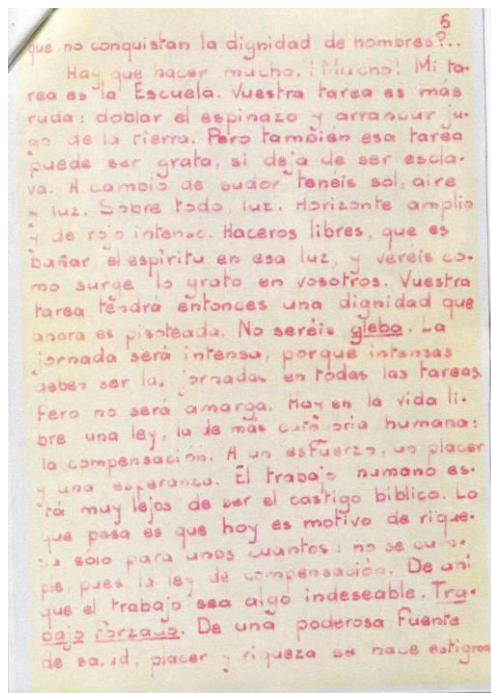 5
que no conquistan la dignidad de hombres?..
Hay que hacer mucho. ¡Mucho! Mi ta-
rea es la Escuela. Vuestra tarea es más
ruda: doblar el espinazo y arrancar ju-
go de la tierra. Pero también esa tarea
puede ser grata, si deja de ser escla-
va. A cambio de sudor tenéis sol, aire
y luz. Sobre todo, luz. Horizonte amplio
y de rojo intenso. Haceros libres, que es
bañar el espiritu en esa luz, y veréis co-
mo surge lo grato en vosotros. Vuestra
tarea tendrá entonces una dignidad que
ahora es pisoteada. No seréis gleba. La
jornada será intensa, porque intensas
deben ser las jornadas en todas las tareas.
Pero no será amarga. Hay en la vida li-
bre una ley, la de más humana:
la compensación. A un esfuerzo, un placer
y una esperanza. El trabajo humano es-
tá muy lejos de ser el castigo bíblico. Lo
que pasa es que hoy es motivo de rique-
za sólo para unos cuantos: no se cum-
ple, pues la ley de compensación. De ahí
que el trabajo sea algo indeseable. Tra-
bajo forzado. De una poderosa fuente
de salud, placer y riqueza se hace estigma